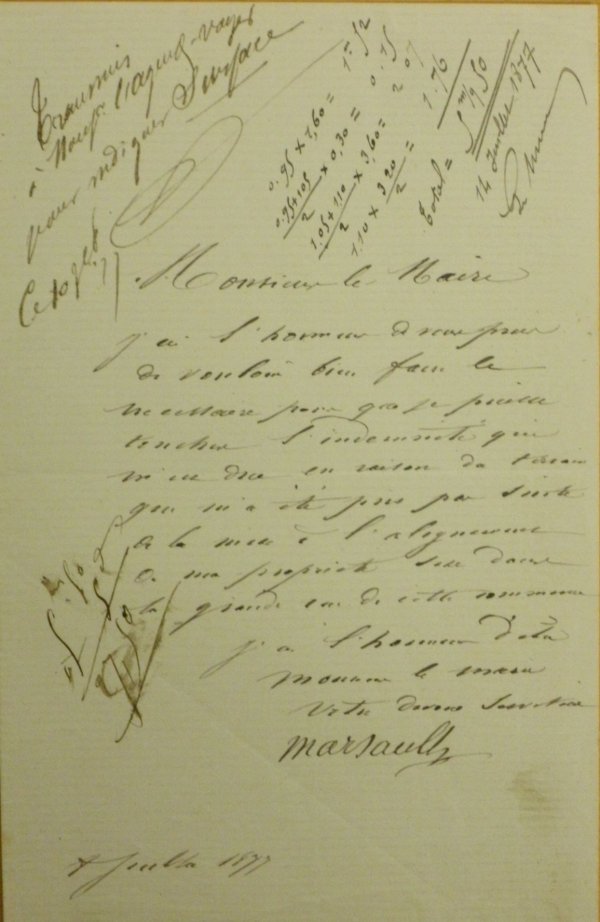 Transmis
à Monsr l'agent-voyer
pour indiquer Surface
Ce 10 
0.95 x 1,60 = 1m 52
0.95+105 / 2 x 0,30 = 0.15
1.05+110 / 2 x 3,60 =
1.10 x 3.20 / 2 = 1.76
Total = 5m 50
14 Juillet 1877
Monsieur le Maire
j'ai l'honneur de vous prier
de vouloir bien faire le
necessaire pour que je puisse
toucher l'indemnité qui
m'est due en raison du terrain
qui m'a été pris par suite
de la mise à l'alignement
de ma propriété sise dans
la grande rue de cette commune
j'ai l'honneur d'être
Monsieur le maire
Votre devoué Serviteur
Marsault
juillet 1877